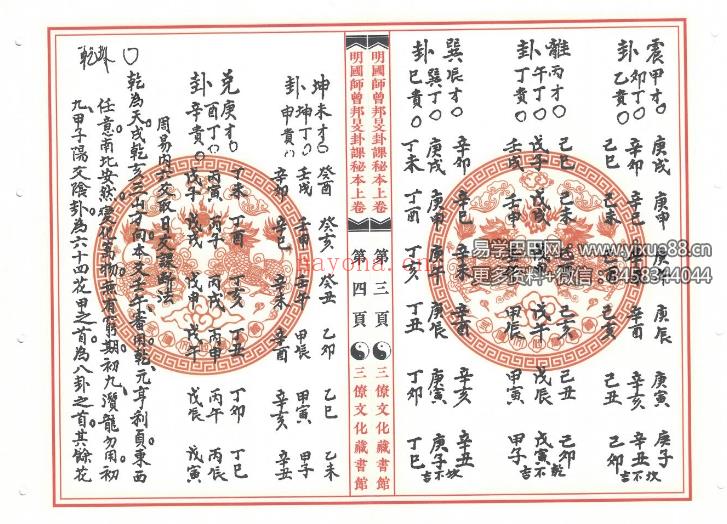 震甲才〇 庚戌 庚申 庚午 庚辰 庚寅 庚子
卦卯丁〇 辛卯 辛巳 辛未 辛酉 辛亥 辛丑 吉不坎
乙貴〇 己巳 己未 己酉 己亥 己丑 己卯
離丙才〇
卦午丁〇 戊子 戊戌 戊申 戊午 戊辰 戊寅 吉不乾
丁貴〇 壬戌 壬申 壬午 甲辰 甲寅 甲子
巽辰才〇 辛卯 辛巳 辛未 辛酉 辛亥 辛丑
卦巽丁〇 庚戌 庚申 庚午 庚辰 庚寅 庚子 吉不坎
巳貴〇 丁未 丁酉 丁亥 丁丑 丁卯 丁巳
明國師曾邦旻卦課秘本上卷 第三頁 三僚文化藏書館
明國師曾邦旻卦課秘本上卷 第四頁 三僚文化藏書館
坤未才〇 癸酉 癸亥 癸丑 乙卯 乙巳 乙未
卦坤丁〇 壬戌 壬申 壬午 甲辰 甲寅 甲子
申貴〇 辛卯 辛巳 辛未 辛酉 辛亥 辛丑
兌庚才〇 丁未 丁酉 丁亥 丁丑 丁卯 丁巳
卦酉丁〇 丙寅 丙戌 丙申 丙午 丙辰
辛貴〇 戊子 戊戌 戊申 戊午 戊辰 戊寅
周易內六爻取日爻課斷法
〇乾為天戌乾亥三山才向本爻壬午審用乾。元亨利貞東西
任意南北安然。變化萬物無有窮期初九。潛龍勿用。初
九甲子陽爻陰卦為六十四花甲之首。為八卦之首。其餘花
乾卦
易学思网 www.yixue88.cn
更多资料+微信：3458344044
savona.com